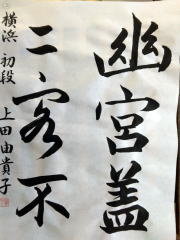 幽宮盖
二客不
横浜 初段 上田由貴子